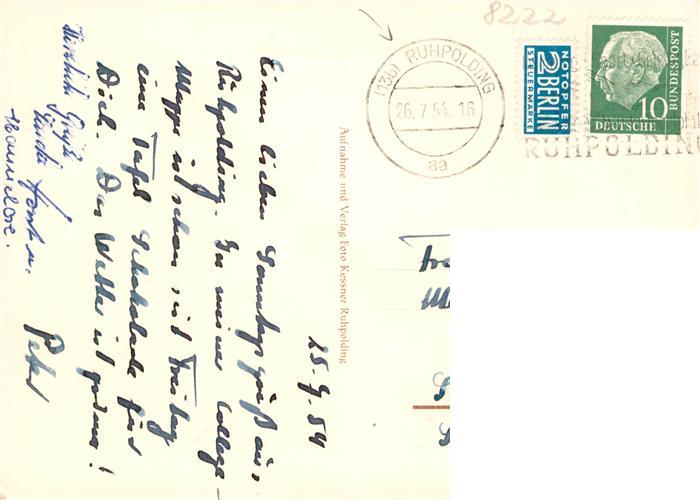 8222
(13b) RUHPOLDING
26.7.54.16
aa
NOTOPFER
2 BERLIN
STEUERMARKE
DEUTSCHE
BUNDESPOST
10
RUHPOLDING
Aufnahme und Verlag Foto Kessner Ruhpolding
25.9.54
Einen lieben Sonntagsgruß aus
Ruhpolding. In meiner College-
Mappe ist schon seit Freitag
eine Tafel Schokolade für
Dich. Das Wetter ist
Peter
Herzliche Grüße
Horst u.
Hannelore.